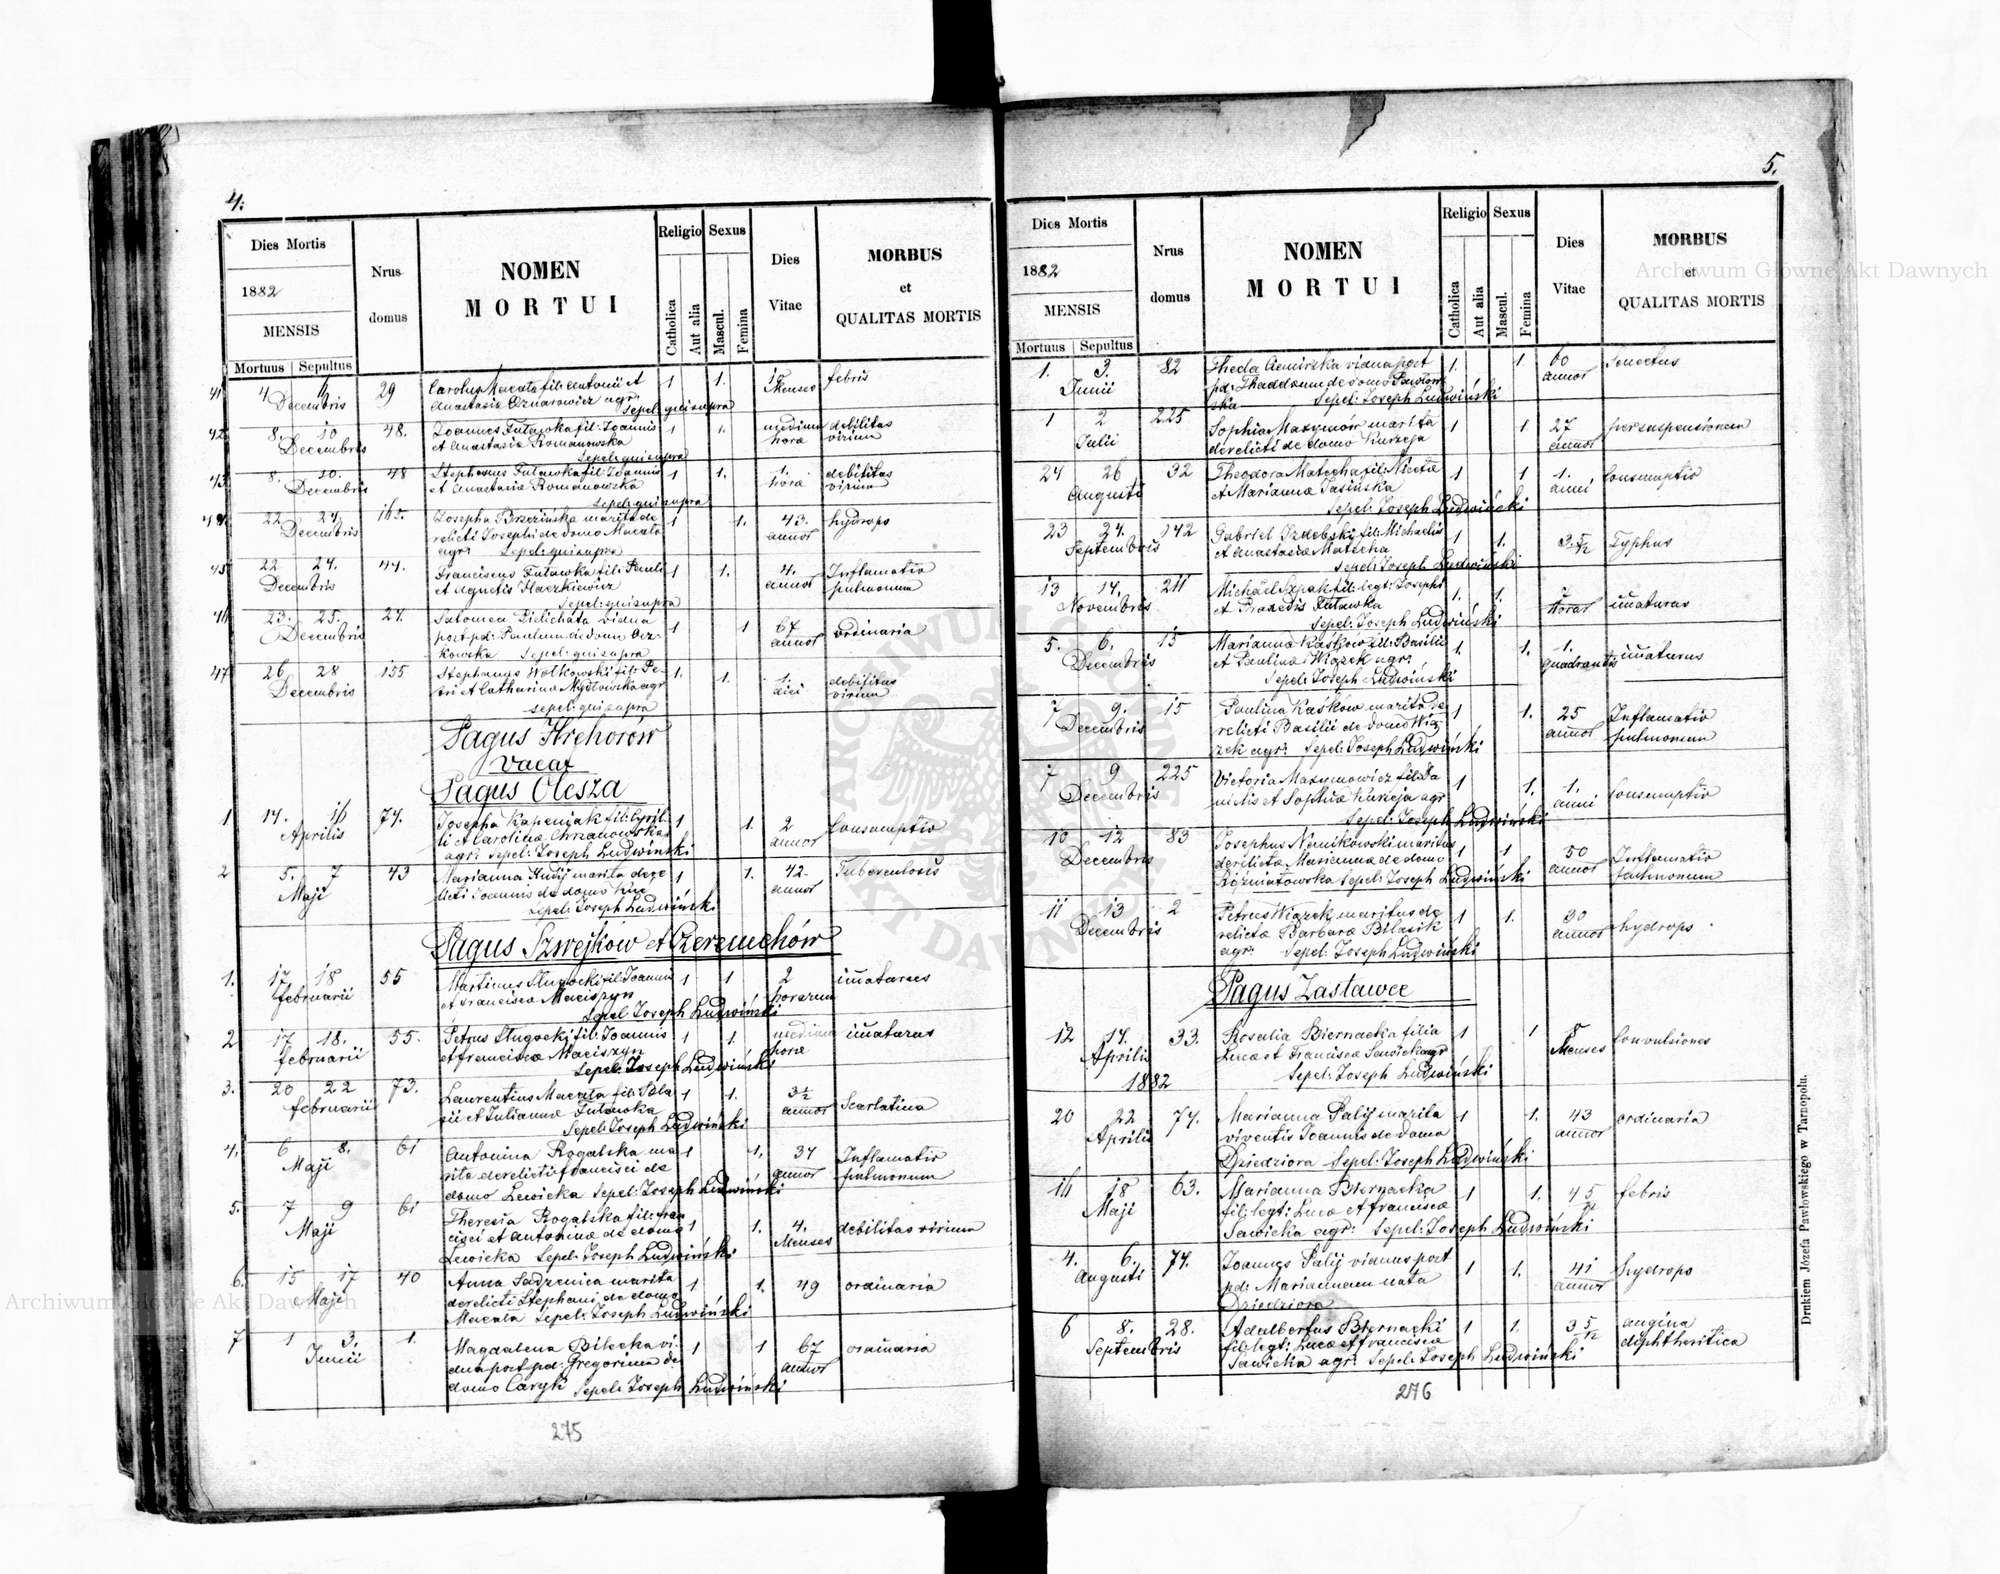 4.
Dies Mortis
1882
MENSIS
Mortuus Sepultus
Nrus
domus
NOMEN
MORTUI
Religio
Catholica
Aut alia
Sexus
Mascul.
Femina
Dies
Vitae
MORBUS
et
QUALITAS MORTIS
41 4 Decembris 29 Carolus Macała fil: Antonii et 1 1. Menses febris
Anastasiæ agr:
Sepel: qui supra
42. 8. 10 Decembris 48. Joannes Futawka fil: Joannis 1 1. medium horæ debilitas virium
et Anastasiæ Romanowska
Sepel: qui supra
43. 8. 10. Decembris 48 Stephanus Futawka fil: Joannis 1 1. 1. hora debilitas virium
et Anastasiæ Romanowska
Sepel: qui supra
44. 22 24. Decembris 165. Josepha Brzezińska marita de 1 1. 43. annor hydrops
relicti Josephi de domo Macała
agr: Sepel: qui supra
45. 22 24. Decembris 44. Franciscus Futawka fil: Pauli 1 1. 4. annor Inflamatio pulmonum
et Agnetis Haczkiewicz
Sepel: qui supra
46 23. 25. Decembris 24. Salomea Pielichata vidua 1 1 67 annor ordinaria
post pd: Paulum de domo
kowska Sepel: qui supra
47 26 28 Decembris 155 Stephanus Wołkowski fil: Pe- 1. 1. 1. diei debilitas virium
tri et Catharinæ Mydłowska agr
sepel: qui supra
Pagus Hrehorów
vacat
Pagus Olesza
1 14. 16 Aprilis 74. Josepha Kapeniak fil: Cyril- 1 1. 2 annor Consumptio
li et Carolinæ Chrzanowska
agr: Sepel: Joseph Ludwiński
2 5. 7 Maji 43 Marianna Hudij marita dere 1 1. 42. annor Tuberculosis
licti Joannis de domo
Sepel: Joseph Ludwiński
Pagus Szwejków et Czeremchów
1. 17 18 februarii 55 Martinus Sługocki fil: Joannis 1 1 2 horarum imaturus
et Francisca Maciszyn
Sepel Joseph Ludwiński
2 17 18. februarii 55. Petrus Sługocki fil: Joannis 1 1. media horæ imaturus
et franciscæ Maciszyn
Sepel: Joseph Ludwiński
3. 20 22 februarii 73. Laurentius Macała fil: Bla 1 1. 3½ annor Scarlatina
sii et Julianæ Futawka
Sepel: Joseph Ludwiński
4. 6 8. Maji 61 Antonina Rogalska ma 1 1. 34 annor Inflamatio pulmonum
rita derelicti francisci de
domo Lewicka Sepel: Joseph Ludwiński
5. 7 9 Maji 61 Theresia Rogalska fil: fran 1 1. 4. Menses debilitas virium
cisci et antoninæ de domo
Lewicka Sepel: Joseph Ludwiński
6. 15 17 Maji 40 Anna Sadzenica marita 1 1. 49 ordinaria
derelicti Stephani de domo
Macała Sepel: Joseph Ludwiński
7 1 3. Junii 1. Magdalena Bilecka vi- 1 1 67 annor ordinaria
dua post pd: Gregorium de
domo Caryk Sepel: Joseph Ludwiński
275
5.
Dies Mortis
1882
MENSIS
Mortuus Sepultus
Nrus
domus
NOMEN
MORTUI
Religio
Catholica
Aut alia
Sexus
Mascul.
Femina
Dies
Vitae
MORBUS
et
QUALITAS MORTIS
1. 3. Junii 82 Thecla vidua post 1. 1. 60 annor Senectus
pd: Thaddæum de domo Pawłow
ska Sepel: Joseph Ludwiński
1 2 Julii 225 Sophia Maxymów marita 1 1 27 annor per suspensionem
derelicti de domo Kurzeja
24 26 Augusti 32 Theodora Matecha fil: 1 1 1. anni Consumptio
et Mariannæ Jasińska
Sepel: Joseph Ludwiński
23 24. Septembris 142 Gabriel Izdebski fil: Michaelis 1 1. 3 5/12 Typhus
et Anastasiæ Matecha
Sepel: Joseph Ludwiński
13 14. Novembris 211 Michael Szpak fil: legt: Josephi 1. 1. 7 horas imaturus
et Praxedis Futawka
Sepel: Joseph Ludwiński
5. 6. Decembris 15 Marianna Kaśków fil: Basilii 1. 1. 1. quadrantis imaturus
et Paulinæ Wiązek agr:
Sepel: Joseph Ludwiński
7 9. Decembris 15 Paulina Kaśków marita de 1 1. 25 annor Inflamatio pulmonum
relicti Basilii de domo Wią
zek agr: Sepel: Joseph Ludwiński
7 9 Decembris 225 Victoria Maxymowicz fil: Da 1 1. 1. anni Consumptio
nielis et Sophiæ Kurzeja agr
Sepel: Joseph Ludwiński
10 12 Decembris 83 Josephus Nemikowski maritus 1 1 50 annor Inflamatio pulmonum
derelictæ Mariannæ de domo
Rożniatowska Sepel: Joseph Ludwiński
11 13 Decembris 2 Petrus Wiązek maritus de 1 1. 30 annor hydrops.
relictæ Barbaræ Bilasik
agr: Sepel: Joseph Ludwiński
Pagus Zastawce
12 14. Aprilis 33. Rosalia Biernacka filia 1 1 8 Menses Convulsiones
Lucæ et Franciscæ Sawicka agr
Sepel: Joseph Ludwiński
1882
20 22 Aprilis 74. Marianna Palij marita 1 1. 43 annor ordinaria
viventis Joannis de domo
Dziedziora Sepel: Joseph Ludwiński
16 18 Maji 63. Marianna Biernacka 1 1. 4 5/12 febris
fil: legt: Lucæ et franciscæ
Sawicka agr: Sepel: Joseph Ludwiński
4. 6. Augusti 74. Joannes Palij viduus post 1 1. 41 annor hydrops
pd: Mariannam nata
Dziedziora
6 8. Septembris 28. Adalbertus Biernacki 1 1. 3 5/12 angina diphtheritica
fil: legt: Lucæ et franciscæ
Sawicka agr: Sepel: Joseph Ludwiński
276
Drukiem Józefa Pawłowskiego w Tarnopolu.
ARCHIWUM GŁÓWNE AKT DAWNYCH
Archiwum Główne Akt Dawnych
Archiwum Główne Akt Dawnych